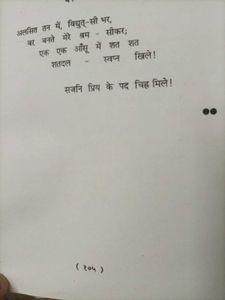 अलसित तन में, विद्युत्-सी भर,
वर बनते मेरे श्रम - सीकर;
एक एक आँसू में शत शत
शतदल - स्वप्न खिले!
सजनि प्रिय के पद चिह्न मिले!
( १०५ )